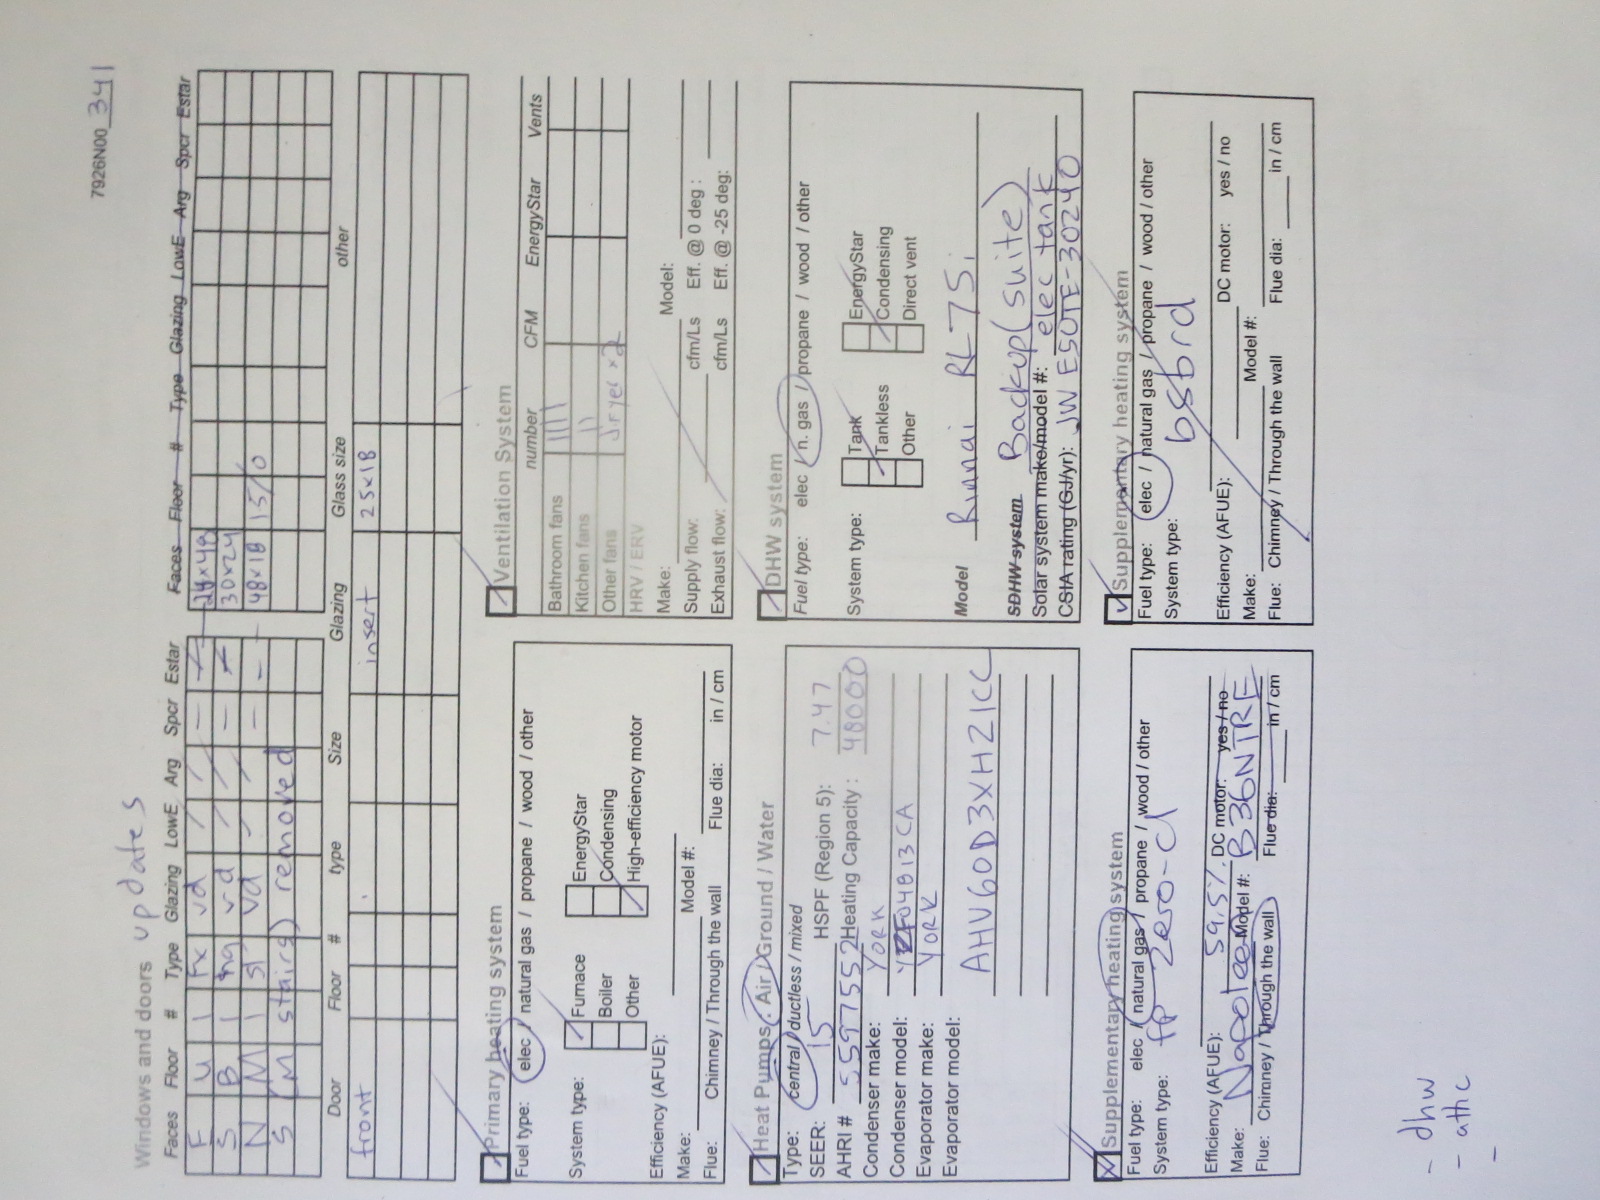 7926N00 341
Windows and doors updates
Faces Floor # Type Glazing LowE Arg Spcr Estar
F U 1 Fx vd / / —
S B 1 hg vd / / —
N M 1 sl vd / / — —
S (M stairs) removed
Faces Floor # Type Glazing LowE Arg Spcr Estar
24x48
30x24
48x18 15/0
Door Floor # type Size Glazing Glass size other
front insert 25x18
Primary heating system
Fuel type: elec / natural gas / propane / wood / other
System type: Furnace EnergyStar
Boiler Condensing
Other High-efficiency motor
Efficiency (AFUE):
Make: Model #:
Flue: Chimney / Through the wall Flue dia: in / cm
Ventilation System
number CFM EnergyStar Vents
Bathroom fans ||||
Kitchen fans ||
Other fans dryer x2
HRV / ERV
Make: Model:
Supply flow: cfm/Ls Eff. @ 0 deg :
Exhaust flow: cfm/Ls Eff. @ -25 deg:
Heat Pumps: Air / Ground / Water
Type: central / ductless / mixed
SEER: 15 HSPF (Region 5): 7.47
AHRI # 5597552 Heating Capacity : 48000
Condenser make: YORK
Condenser model: YZF04813CA
Evaporator make: YORK
Evaporator model:
AHV60D3XH21CC
DHW system
Fuel type: elec / n. gas / propane / wood / other
System type: Tank EnergyStar
Tankless Condensing
Other Direct vent
Model Rinnai RL75i
SDHW system Backup (suite)
Solar system make/model #: elec tank
CSIA rating (GJ/yr): JW E50TE-30240
Supplementary heating system
Fuel type: elec / natural gas / propane / wood / other
System type: fp zero-cl
Efficiency (AFUE): 59.5% DC motor: yes / no
Make: Napoleon Model #: B36NTRE
Flue: Chimney / Through the wall Flue dia: in / cm
Supplementary heating system
Fuel type: elec / natural gas / propane / wood / other
System type: bsbrd
Efficiency (AFUE): DC motor: yes / no
Make: Model #:
Flue: Chimney / Through the wall Flue dia: in / cm
- dhw
- attic
-